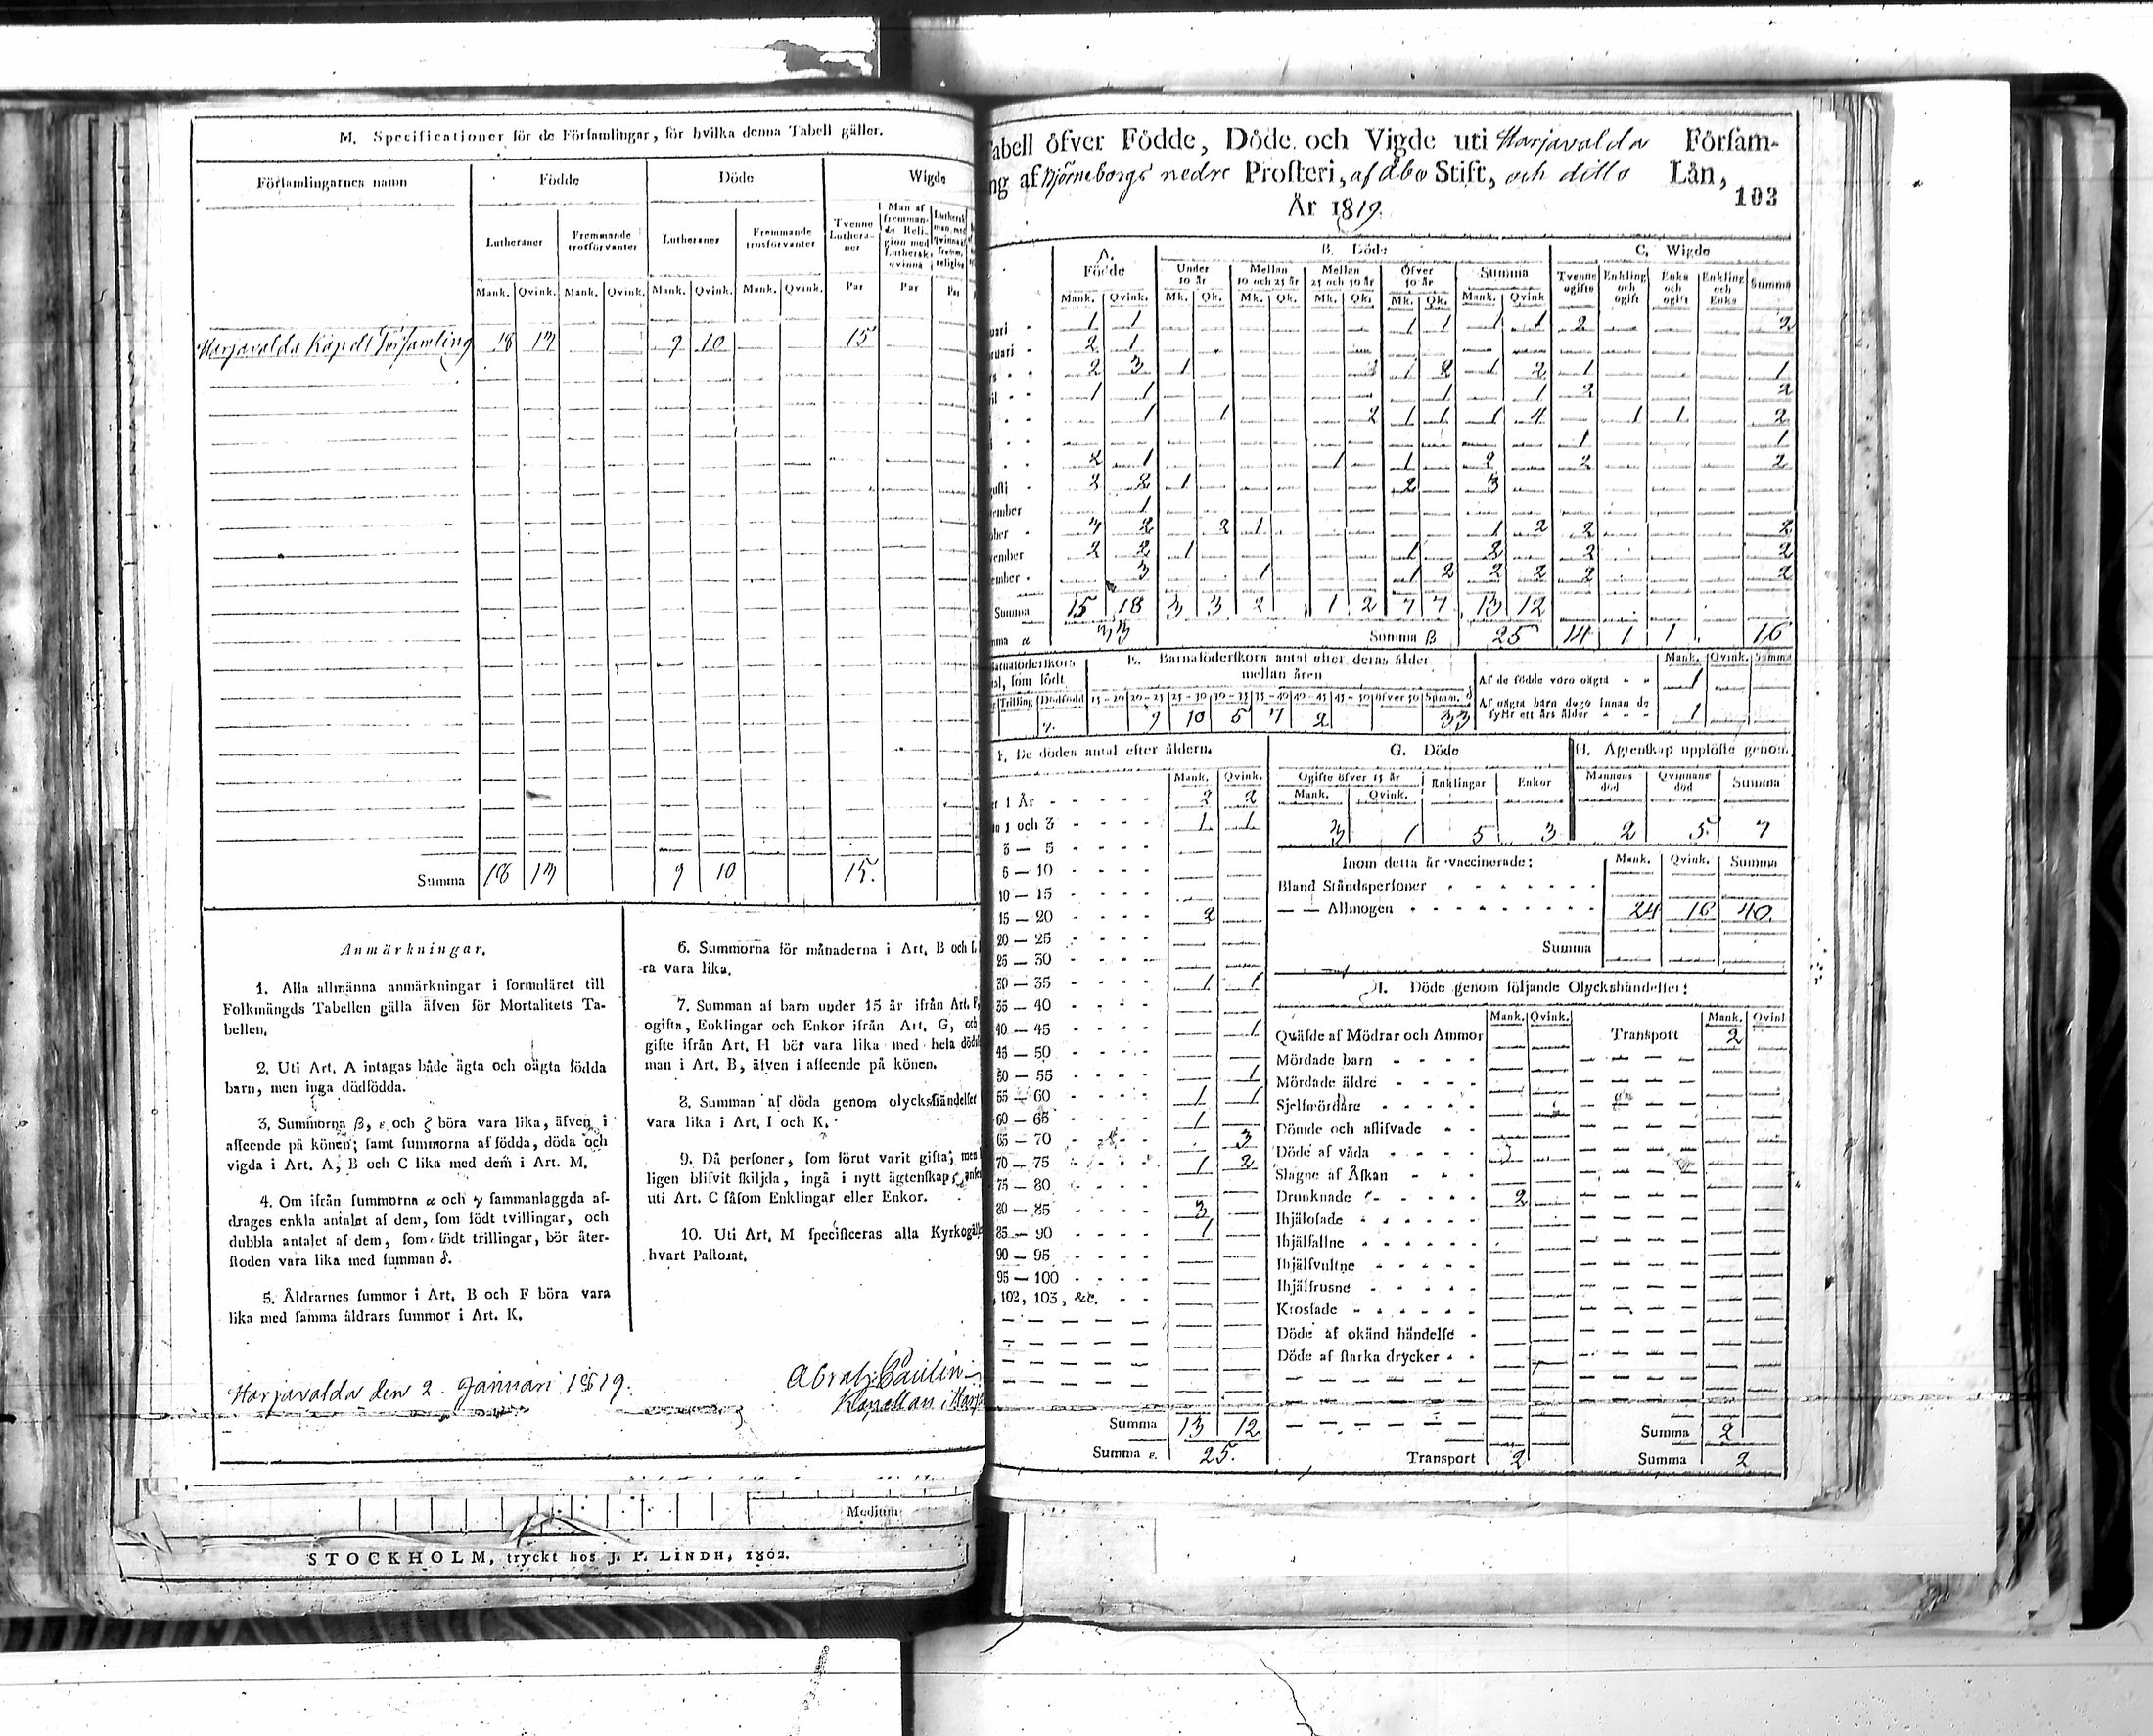 M. Specificationer för de Församlingar, för hvilka denna Tabell gäller.
Församlingarnes namn Födde Döde Wigde
Lutheraner Fremmande trosförvanter Lutheraner Fremmande trosförvanter Tvenne Lutheraner Man af fremmande Religion med Luthersk qvinna
Mank. Qvink. Mank. Qvink. Mank. Qvink. Mank. Qvink. Par Par Par
Harjavalda Kapell Församling 18 13 9 10 15
Summa 18 13 9 10 15.
Anmärkningar.
1. Alla allmänna anmärkningar i formuläret till
Folkmängds Tabellen gälla äfven för Mortalitets Ta-
bellen.
2. Uti Art. A intagas både ägta och oägta födda
barn, men inga dödfödda.
3. Summorna β, ε och ζ böra vara lika, äfven i
afseende på könen; samt summorna af födda, döda och
vigda i Art. A, B och C lika med dem i Art. M.
4. Om ifrån summorna α och γ sammanlaggda af-
drages enkla antalet af dem, som födt tvillingar, och
dubbla antalet af dem, som födt trillingar, bör åter-
stoden vara lika med summan δ.
5. Åldrarnes summor i Art. B och F böra vara
lika med samma åldrars summor i Art. K.
6. Summorna för månaderna i Art. B och L
ra vara lika.
7. Summan af barn under 15 år ifrån Art. F,
ogifta, Enklingar och Enkor ifrån Art. G, och
gifte ifrån Art. H bör vara lika med hela döds
man i Art. B, äfven i afseende på könen.
8. Summan af döda genom olyckshändelser
vara lika i Art. I och K.
9. Då personer, som förut varit gifta, men
ligen blifvit skiljda, ingå i nytt ägtenskap,
uti Art. C såsom Enklingar eller Enkor.
10. Uti Art. M specificeras alla Kyrkogäll
hvart Pastorat.
Harjavalda den 2. Januari 1819.
Abrah. Paulin
Kapellan i Harj
Medium
STOCKHOLM, tryckt hos J. P. LINDH, 1802.
Tabell öfver Födde, Döde och Vigde uti Harjavalda Församling
ng af Björneborgs nedre Prosteri, af Åbo Stift, och ditto Län,
103
År 1819.
A. Födde B. Döde C. Wigde
Under 10 år Mellan 10 och 25 år Mellan 25 och 50 år Öfver 50 år Summa Tvenne ogifte Enkling och ogift Enka och ogift Enkling och Enka Summa
Mank. Qvink. Mk. Qk. Mk. Qk. Mk. Qk. Mk. Qk. Mank. Qvink
uari 1 1 1 1 1 1 2 2
ruari 2 1
rs 2 3 1 1 2 1 2 1 1
il 1 1 1 1 2 2
1 1 2 1 1 1 4 1 1 2
1 1
2 1 1 1 2 2 2
gusti 2 2 1 2 3
tember 1
ober 3 2 2 1 1 2 2 2
vember 2 2 1 1 2 2 2
ember 3 1 1 2 2 2 2 2
Summa 15 18 3 3 2 1 2 7 7 13 12
mma α 33 Summa β 25 14 1 1 16
Barnaföderskors
al, som födt
Trilling Dödfödd
E. Barnaföderskors antal efter deras ålder
mellan åren
15-20 20-25 25-30 30-35 35-40 40-45 45-50 öfver 50 Summ. δ
9 10 5 7 2 33
Mank. Qvink. Summa
Af de födde voro oägta 1
Af oägta barn dogo innan de
fyllt ett års ålder 1
F. De dödes antal efter åldern.
Mank. Qvink.
er 1 År 2 2
1 och 3 1 1
3 — 5
6 — 10
10 — 15
15 — 20 2
20 — 25
25 — 30
30 — 35 1 1
35 — 40
40 — 45 1
45 — 50
50 — 55 1
55 — 60 1 1
60 — 65 1
65 — 70 3
70 — 75 1 2
75 — 80
80 — 85 3
85 — 90 1
90 — 95
95 — 100
, 102, 103, &c.
Summa 13 12
Summa ε. 25.
G. Döde
Ogifte öfver 15 år Enklingar Enkor
Mank. Qvink.
3 1 5 3
H. Ägtenskap upplöste genom
Mannens död Qvinnans död Summa
2 5 7
Inom detta år vaccinerade: Mank. Qvink. Summa
Bland Ståndspersoner
— — Allmogen 24 16 40.
Summa
I. Döde genom följande Olyckshändelser:
Mank. Qvink. Mank. Qvink
Qväfde af Mödrar och Ammor Transport 2
Mördade barn
Mördade äldre
Sjelfmördare
Dömde och aflifvade
Döde af våda
Slagne af Åskan
Drunknade 2
Ihjälosade
Ihjälfallne
Ihjälsvultne
Ihjälfrusne
Krossade
Döde af okänd händelse
Döde af starka drycker
Summa 2
Transport 2 Summa 2